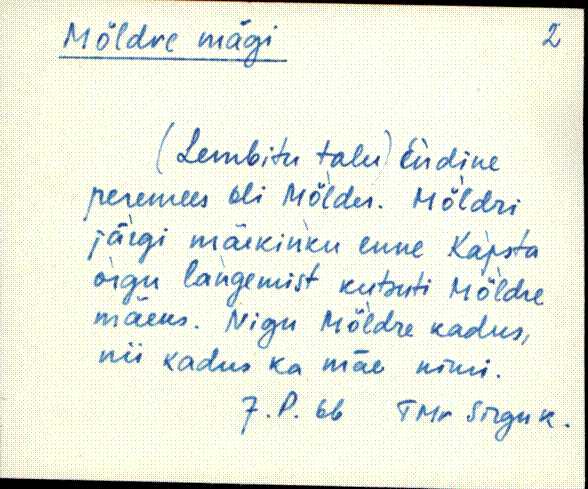 Möldre mägi 2
(Lembitu talu) Endine
peremees oli Mö̀lder. Mö̀ldri
jä̀rgi mäekinku enne Kàpsta
òrgu làngemist kutsuti Mö̀ldre
mäeks. Nigu Mö̀ldre kadus,
nii kadus ka mäe nimi.
7. P. 66 TMr Sirguk.